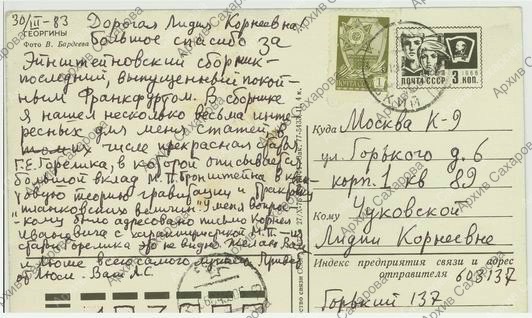 30/III-83 Дорогая Лидия Корнеевна
ГЕОРГИНЫ
Фото В. Бардеева
большое спасибо за
Эйнштейновский сборник -
последний, выпущенный покой-
ным Франкфуртом. В сборнике
я нашел несколько весьма инте-
ресных для меня статей, в
том числе прекрасная статья
Г.Е. Горелика, в которой описывается
большой вклад М.П. Бронштейна в кван-
товую теорию гравитации и
"планковских величин". У меня вопрос
- кому было адресовано письмо Корнея
Ивановича с характеристикой М.П. - из
статьи Горелика это не видно. Желаю Вам
и Люше всего самого лучшего. Привет
от Люси. Ваш А.С.
1
ПОЧТА СССР
1966
3 КОП.
Куда Москва К-9
ул. Горького д. 6
корп. 1 кв 89
Кому Чуковской
Лидии Корнеевне
Индекс предприятия связи и адрес
отправителя 603137
Горький 137
Архив Сахарова